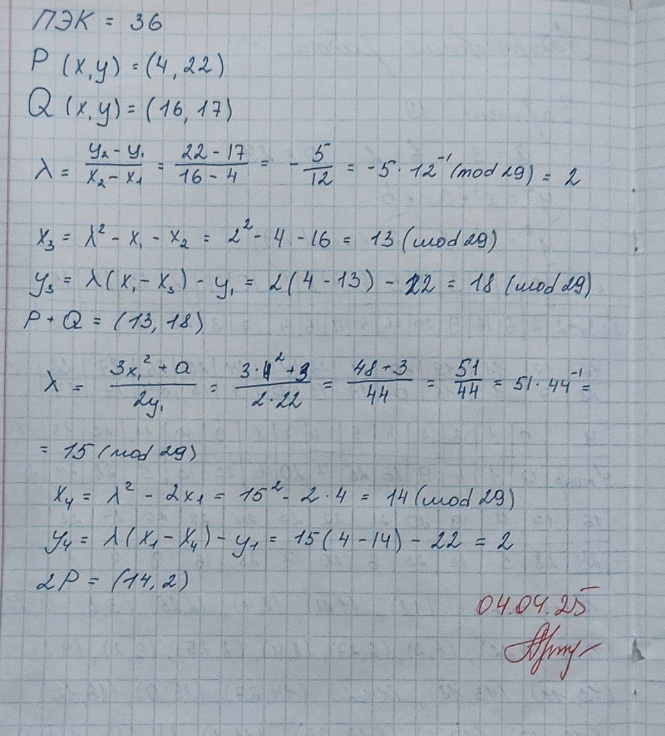 ПЭК = 36
P (x,y) = (4,22)
Q (x,y) = (16,17)
λ = (y₂ - y₁)/(x₂ - x₁) = (22 - 17)/(16 - 4) = - 5/12 = -5 · 12⁻¹ (mod 29) = 2
x₃ = λ² - x₁ - x₂ = 2² - 4 - 16 = 13 (mod 29)
y₃ = λ(x₁ - x₃) - y₁ = 2(4 - 13) - 22 = 18 (mod 29)
P + Q = (13, 18)
λ = (3x₁² + a)/(2y₁) = (3·4² + 3)/(2·22) = (48 + 3)/44 = 51/44 = 51 · 44⁻¹ =
= 15 (mod 29)
x₄ = λ² - 2x₁ = 15² - 2·4 = 14 (mod 29)
y₄ = λ(x₁ - x₄) - y₁ = 15(4 - 14) - 22 = 2
2P = (14, 2)
04.04.25